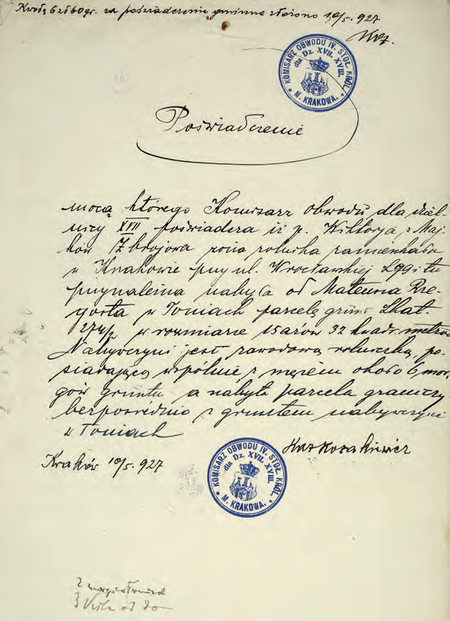 Kwotę 6 zł 60 gr. za poświadczenie gminne złożono 10/5. 927
KOMISARZ OBWODU IV. STOŁ. KRÓL. M. KRAKOWA.
dla Dz. XVII. XVIII.
Poświadczenie
mocą którego Komisarz obwodu dla dziel-
nicy XVII poświadcza iż p. Wiktorya z Maj-
ków Zbrojowa żona rolnika zamieszkała
w Krakowie przy ul. Wrocławskiej
przynależna nabyła od Mateusza
w Toniach parcelę grunt lkat.
274/2 w rozmiarze 15 arów 32 kwadr. metrów
Nabywczyni jest zawodową rolniczką, po-
siadającą wspólnie z mężem około 6 mor-
gów gruntu a nabyta parcela graniczy
bezpośrednio z gruntem nabywczyni
w Toniach
Kraków 10/5. 927
KOMISARZ OBWODU IV. STOŁ. KRÓL. M. KRAKOWA.
dla Dz. XVII. XVIII.
2
3